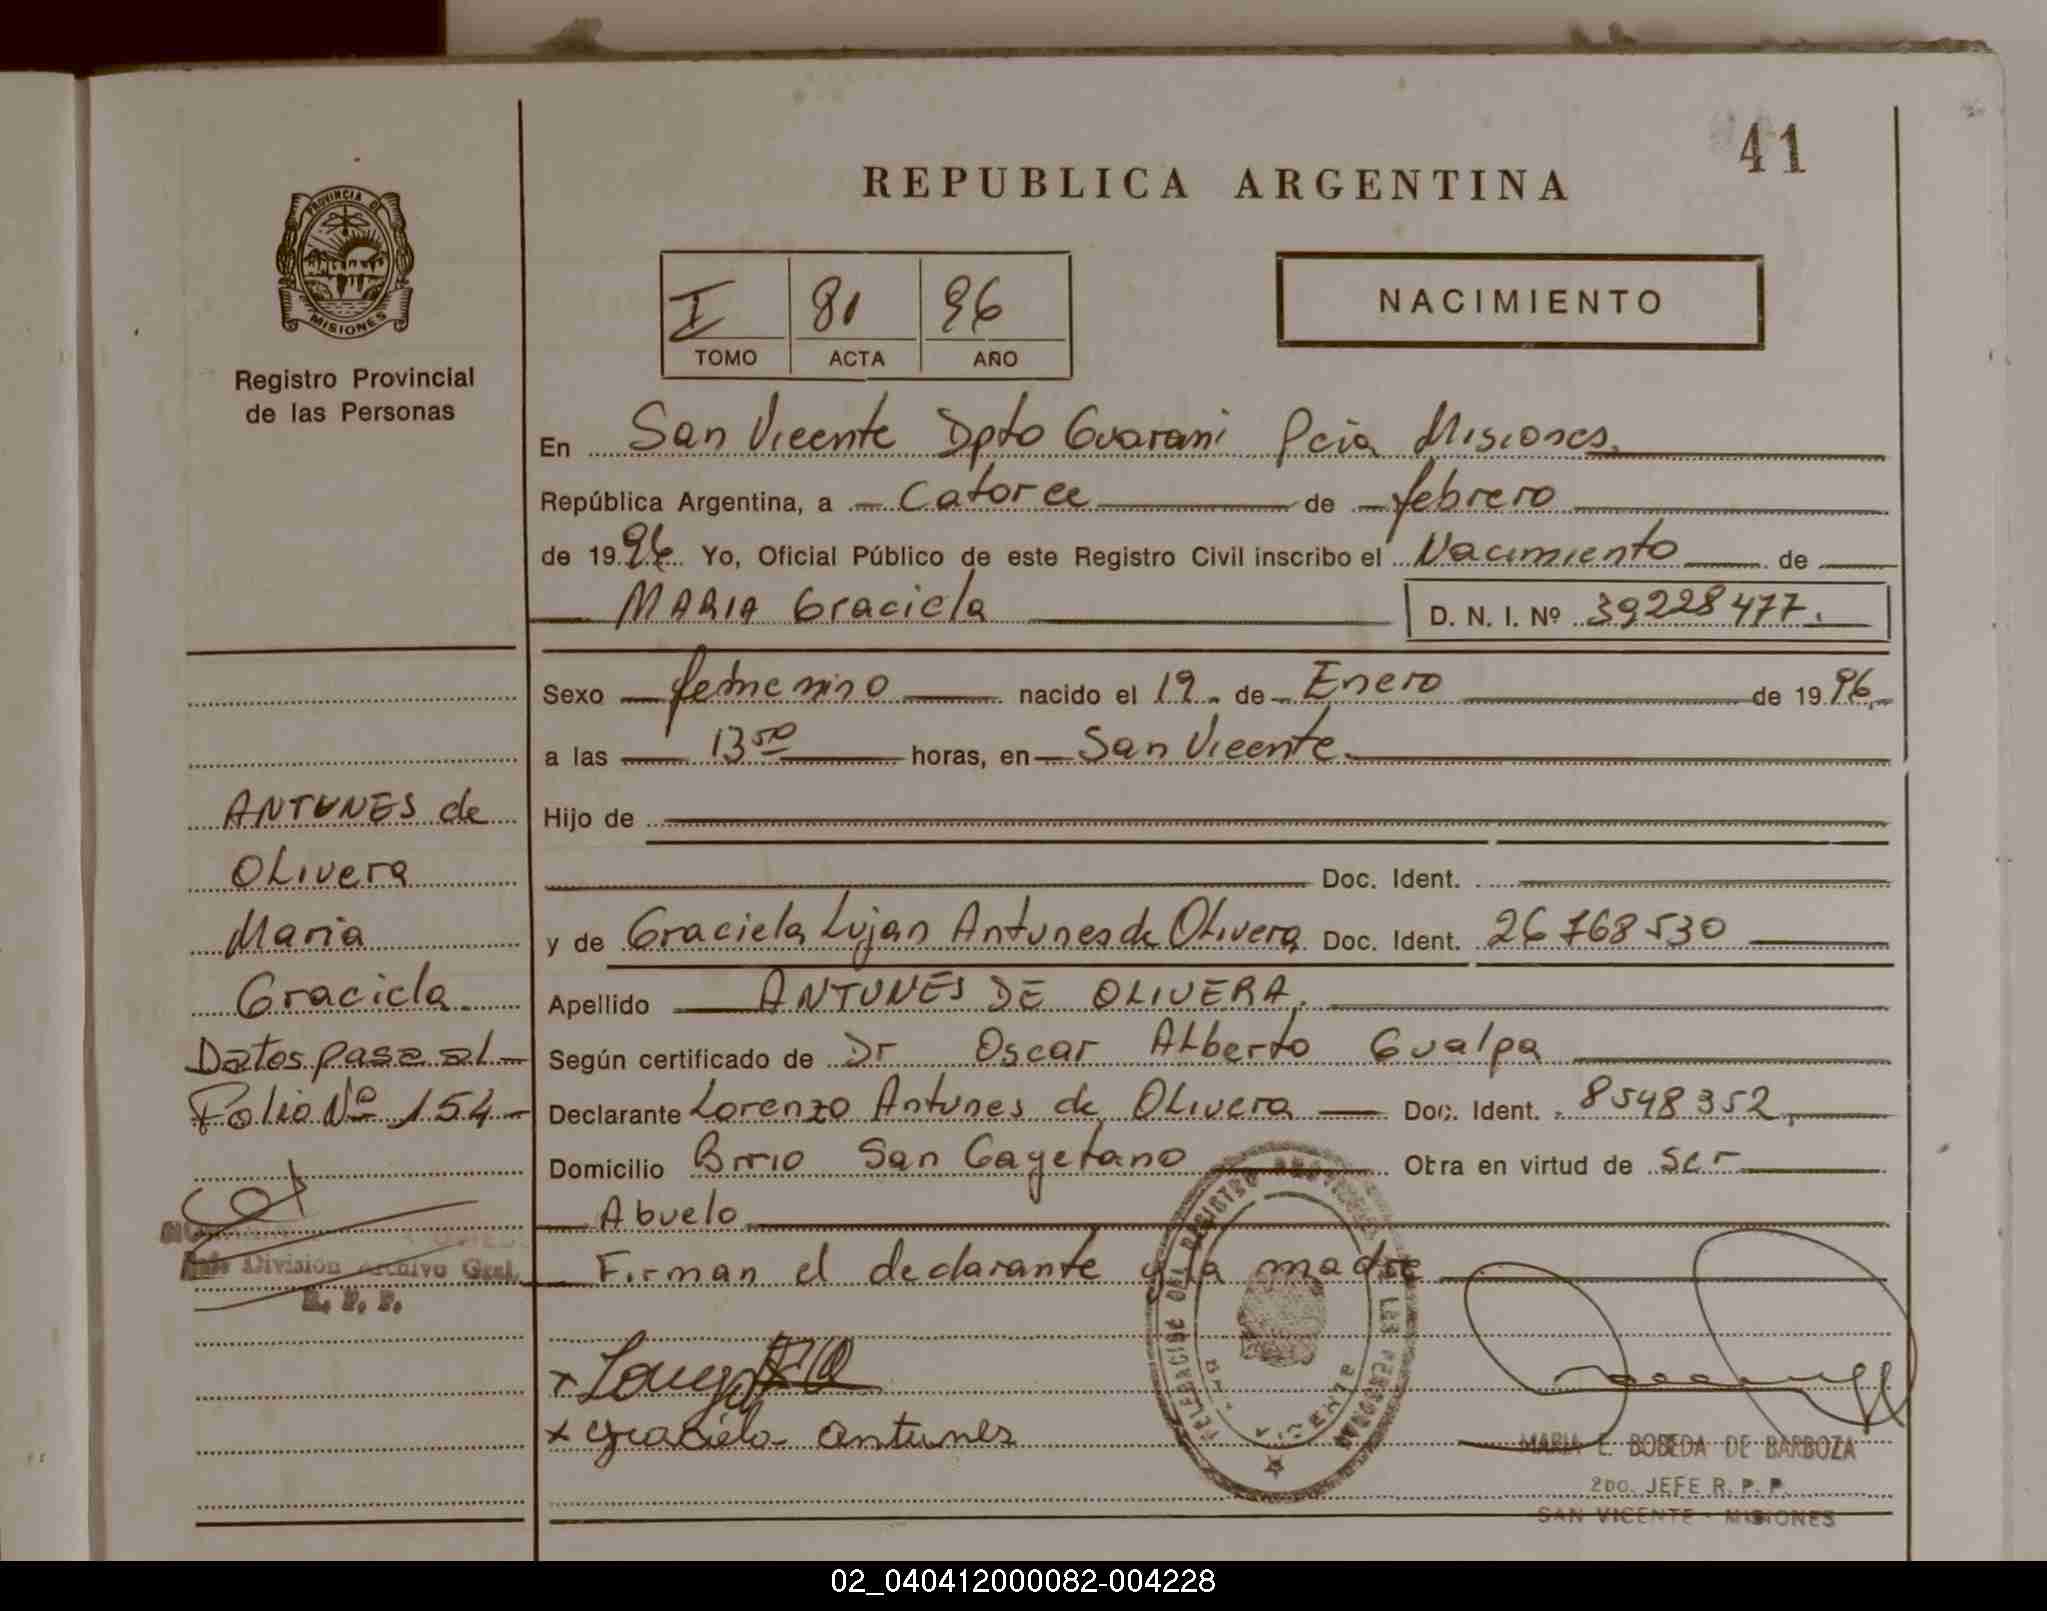 41
REPUBLICA ARGENTINA
PROVINCIA DE
MISIONES
Registro Provincial
de las Personas
I 81 96
TOMO ACTA AÑO
NACIMIENTO
En San Vicente Dpto Guarani Pcia Misiones.
República Argentina, a Catorce de febrero
de 1996 Yo, Oficial Público de este Registro Civil inscribo el Nacimiento de
MARIA Graciela D. N. I. Nº 39228477.
Sexo femenino nacido el 19 de Enero de 1996
a las 13 50 horas, en San Vicente
Hijo de
Doc. Ident.
y de Graciela Lujan Antunes de Olivera Doc. Ident. 26768530
Apellido ANTUNES DE OLIVERA.
Según certificado de Dr Oscar Alberto Gualpa
Declarante Lorenzo Antunes de Olivera Doc. Ident. 8548352
Domicilio Brrio San Cayetano Obra en virtud de ser
Abuelo
Firman el declarante y la madre
x
x Graciela antunes
ANTUNES de
Olivera
Maria
Graciela
Datos pasa al
Folio Nº 154
División Archivo Gral.
R. P. P.
DELEGACION DEL REGISTRO PROVINCIAL DE LAS PERSONAS
SAN VICENTE
MARIA E. BOBEDA DE BARBOZA
2DO. JEFE R. P. P.
SAN VICENTE - MISIONES
02_040412000082-004228